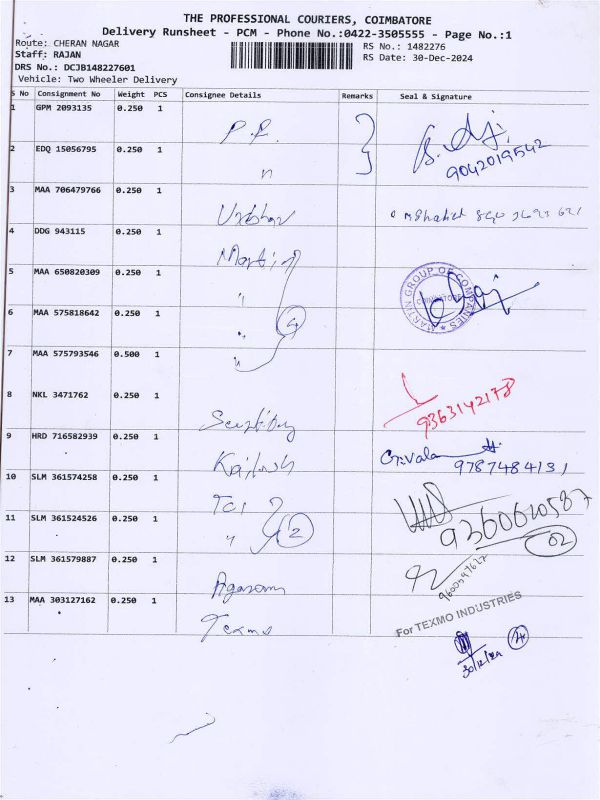 THE PROFESSIONAL COURIERS, COIMBATORE
Delivery Runsheet - PCM - Phone No.:0422-3505555 - Page No.:1
Route: CHERAN NAGAR
RS No.: 1482276
Staff: RAJAN
RS Date: 30-Dec-2024
DRS No.: DCJB148227601
Vehicle: Two Wheeler Delivery
S No Consignment No Weight PCS Consignee Details Remarks Seal & Signature
1 GPM 2093135 0.250 1 P.P.
9042019542
2 EDQ 15056795 0.250 1 "
3 MAA 706479766 0.250 1
4 DDG 943115 0.250 1 Martin
5 MAA 650820309 0.250 1 "
MARTIN GROUP OF COMPANIES
COIMBATORE
6 MAA 575818642 0.250 1 " 4
7 MAA 575793546 0.500 1 "
8 NKL 3471762 0.250 1
9363142178
9 HRD 716582939 0.250 1 Kailash
9787484131
10 SLM 361574258 0.250 1 Tci
9360610587
11 SLM 361524526 0.250 1 " 2
02
12 SLM 361579887 0.250 1
13 MAA 303127162 0.250 1 Texmo
For TEXMO INDUSTRIES
30/12/24